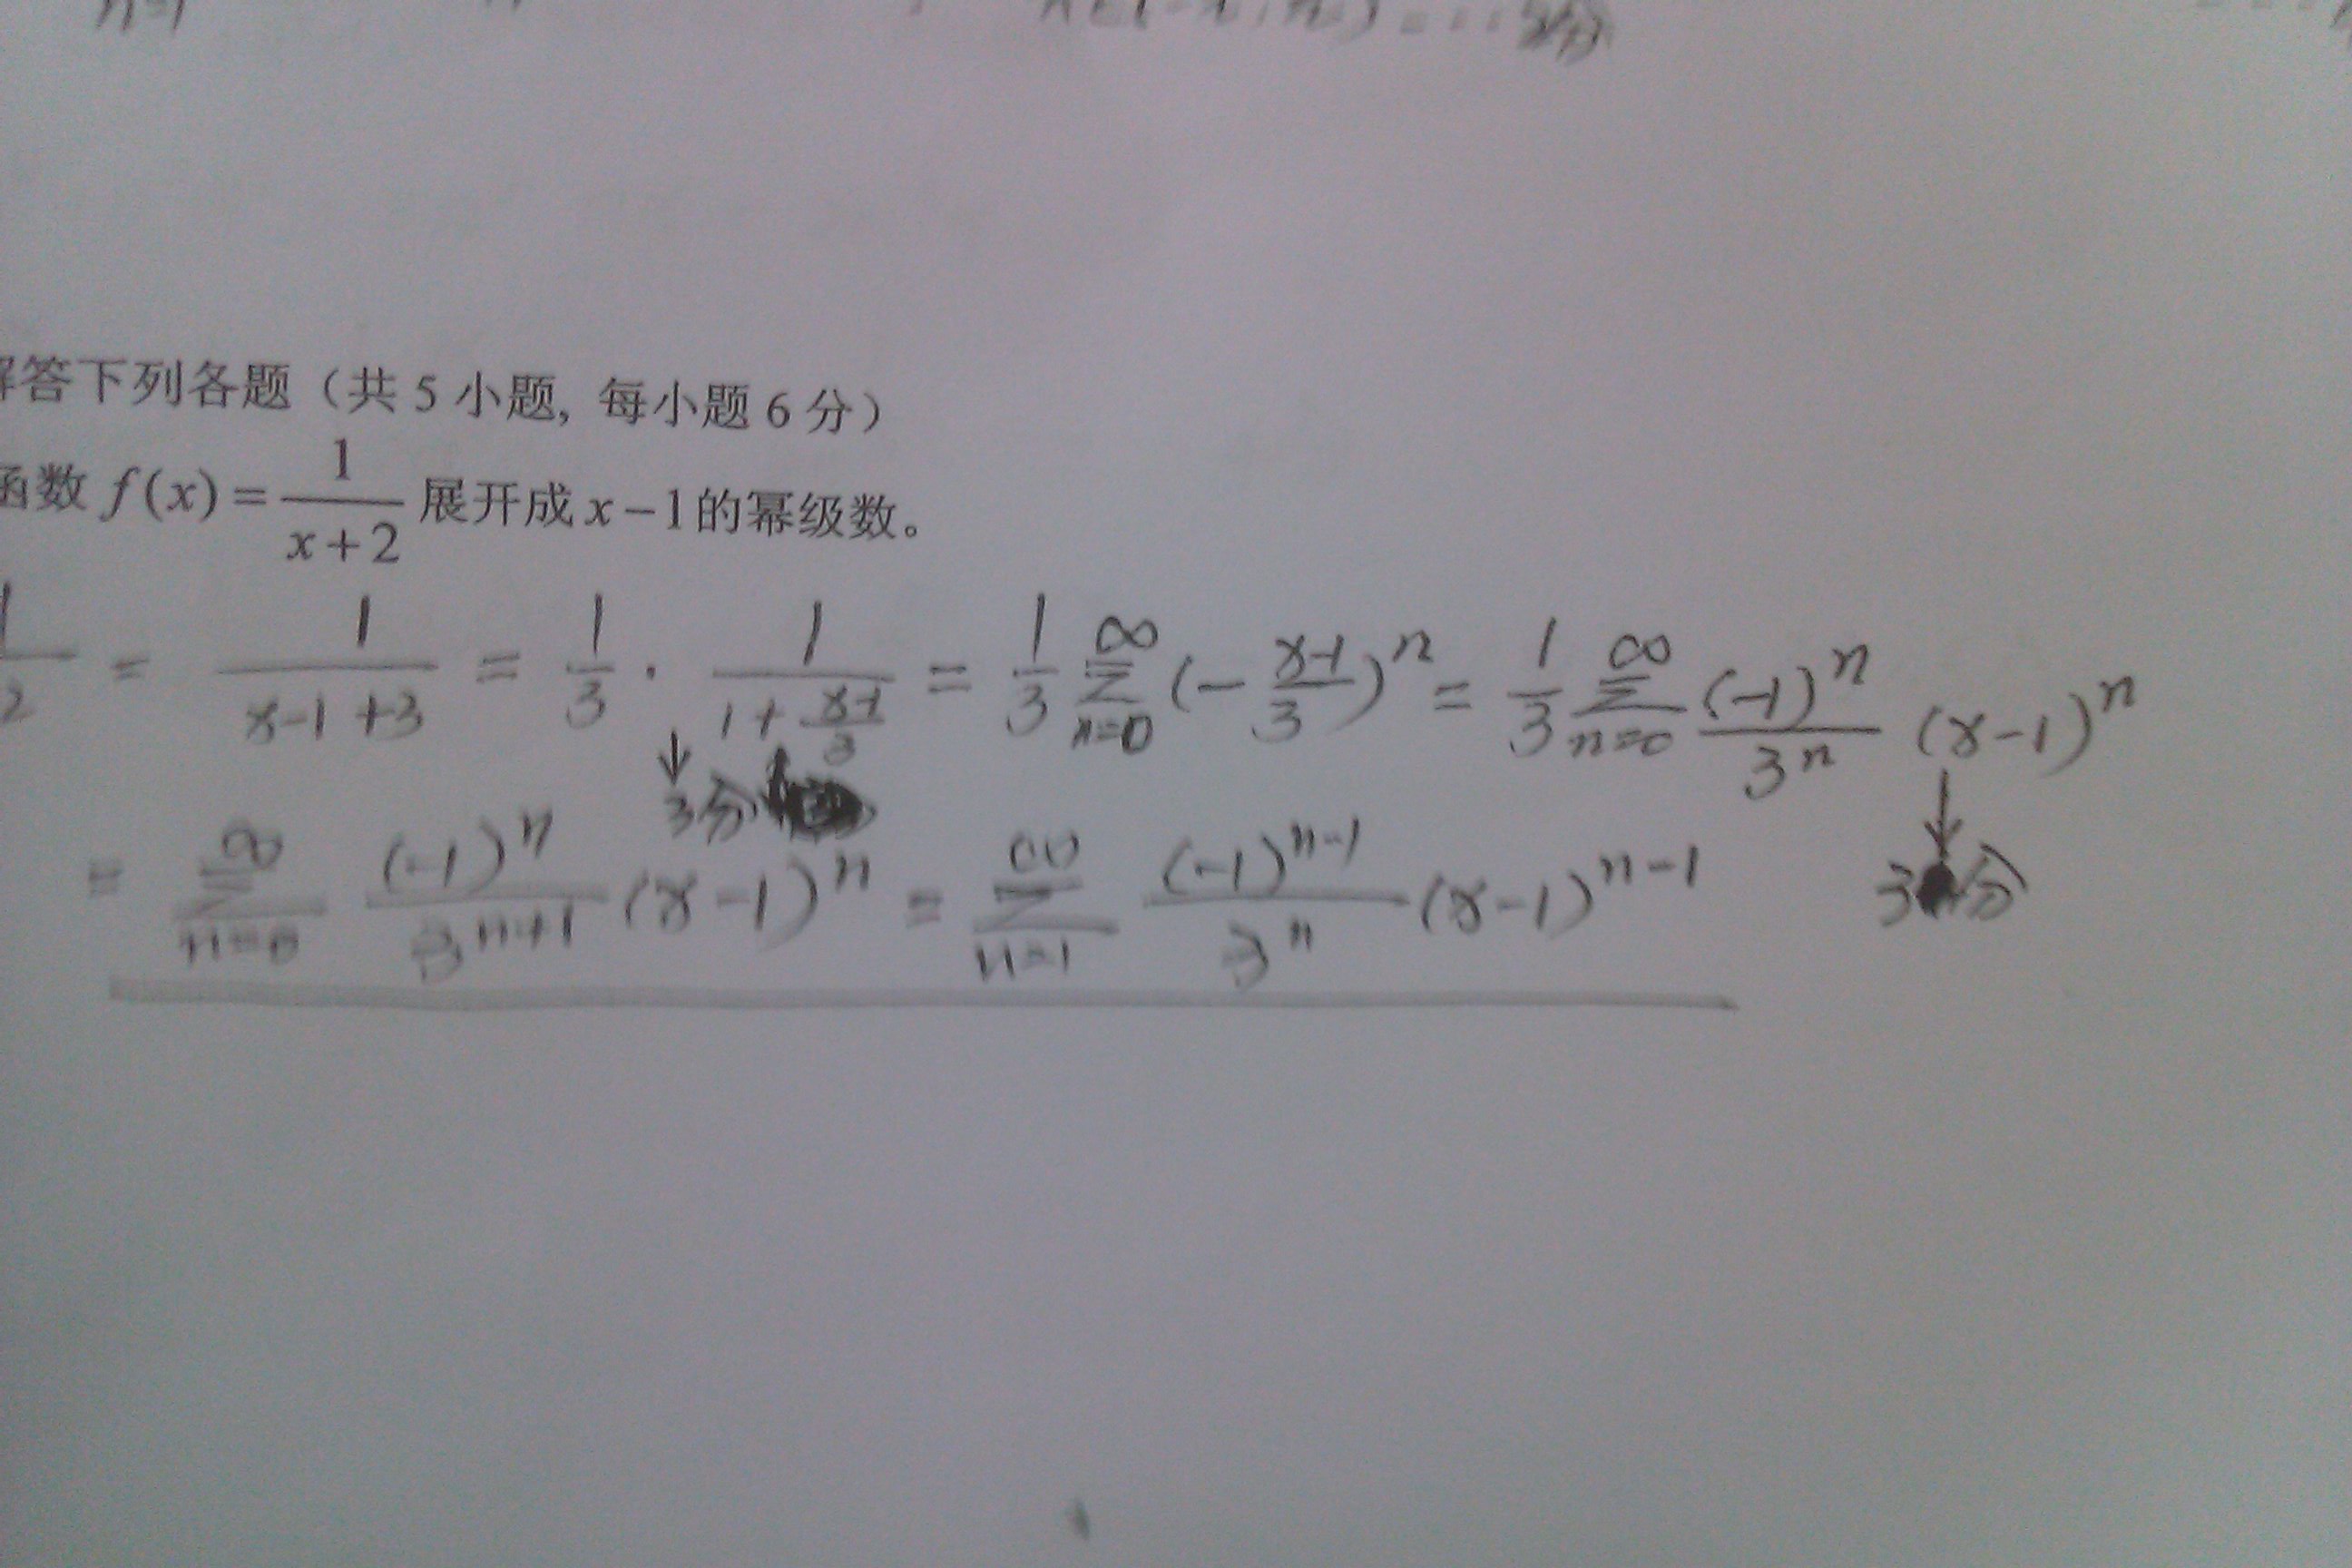 解答下列各题（共 5 小题, 每小题 6 分）
函数 f(x) = 1/(x+2) 展开成 x−1 的幂级数。
= 1/(x-1+3) = 1/3 · 1/(1+(x-1)/3) = 1/3 ∑_{n=0}^{∞} (-(x-1)/3)^n = 1/3 ∑_{n=0}^{∞} (-1)^n/3^n (x-1)^n
↓ 3分
↓ 3分
= ∑_{n=0}^{∞} (-1)^n/3^{n+1} (x-1)^n = ∑_{n=1}^{∞} (-1)^{n-1}/3^n (x-1)^{n-1}